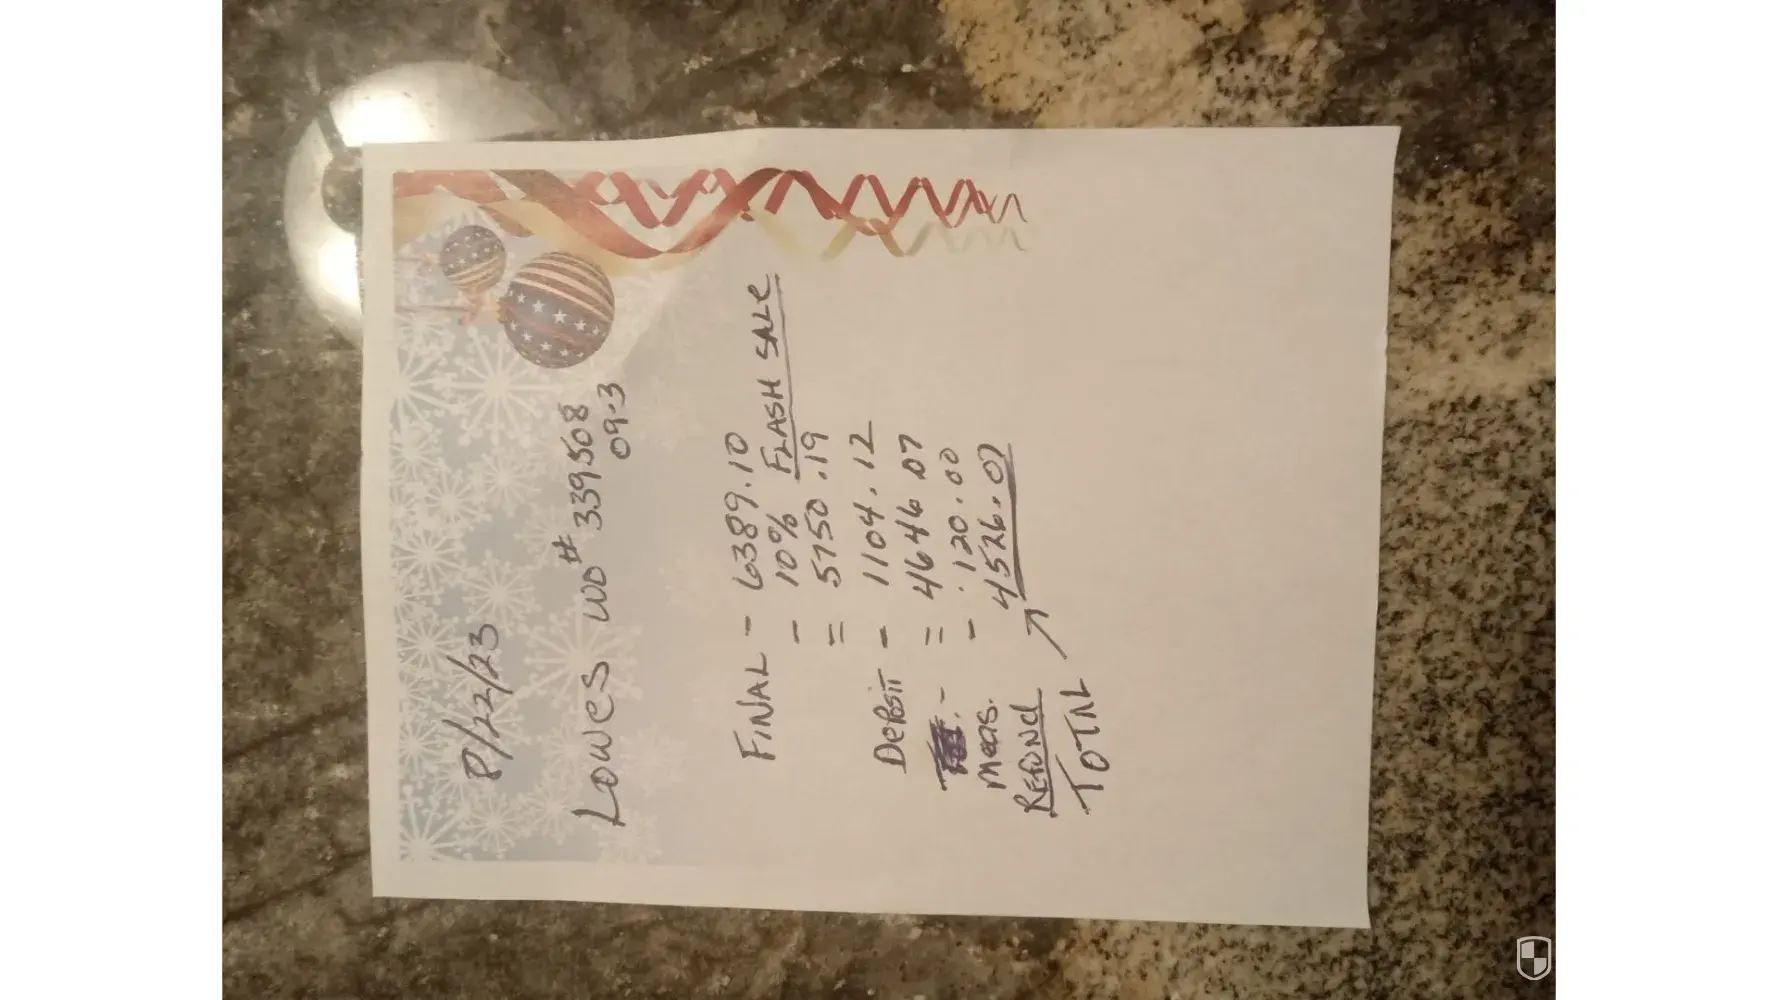 8/22/23
Lowes WO# 339508
09-3
FINAL - 6389.10
- 10% FLASH SALE
= 5750.19
Deposit - 1104.12
= 4646.07
Meas. - 120.00
Refund 4526.07
TOTAL